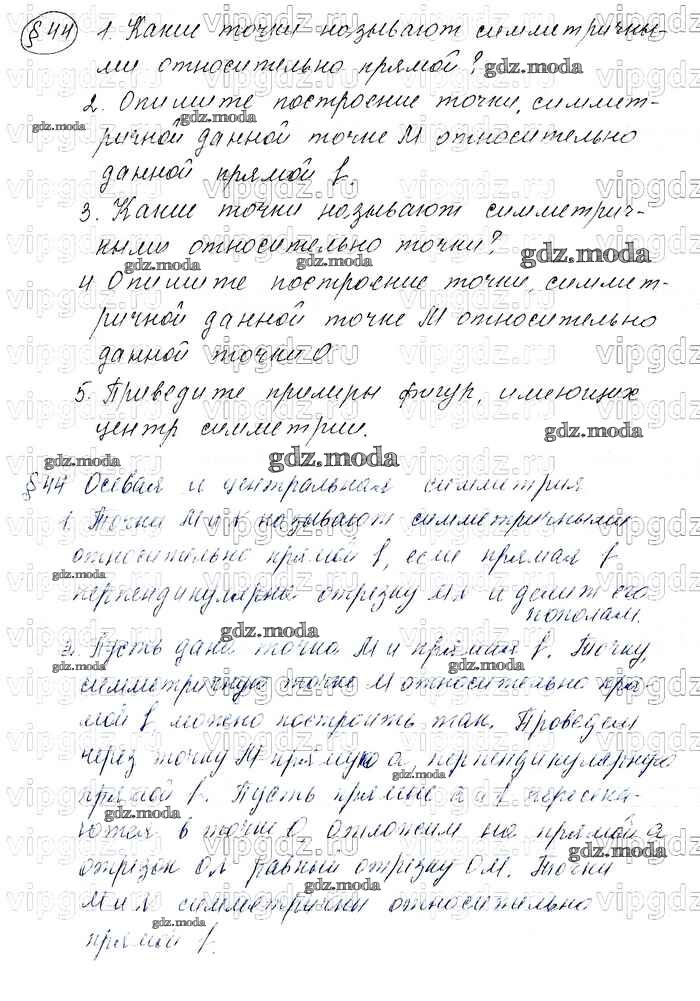 § 44 1. Какие точки называют симметричны-
ми относительно прямой?
2. Опишите построение точки, симмет-
ричной данной точке M относительно
данной прямой l.
3. Какие точки называют симметрич-
ными относительно точки?
4 Опишите построение точки, симмет-
ричной данной точке M относительно
данной точки O
5. Приведите примеры фигур, имеющих
центр симметрии.
§ 44 Осевая и центральная симметрия
1. Точки M и называют симметричными
относительно прямой l, если прямая l
перпендикулярна отрезку и делит его
пополам.
2. Пусть дана точка M и прямая l. Точку,
симметричную точке M относительно пря-
мой l можно построить так. Проведем
через точку M прямую a, перпендикулярную
прямой l. Пусть прямые a и l пересека-
ются в точке O отложим на прямой a
отрезок равный отрезку OM. Точки
M и симметричны относительно
прямой l.
gdz.moda
vipgdz.ru